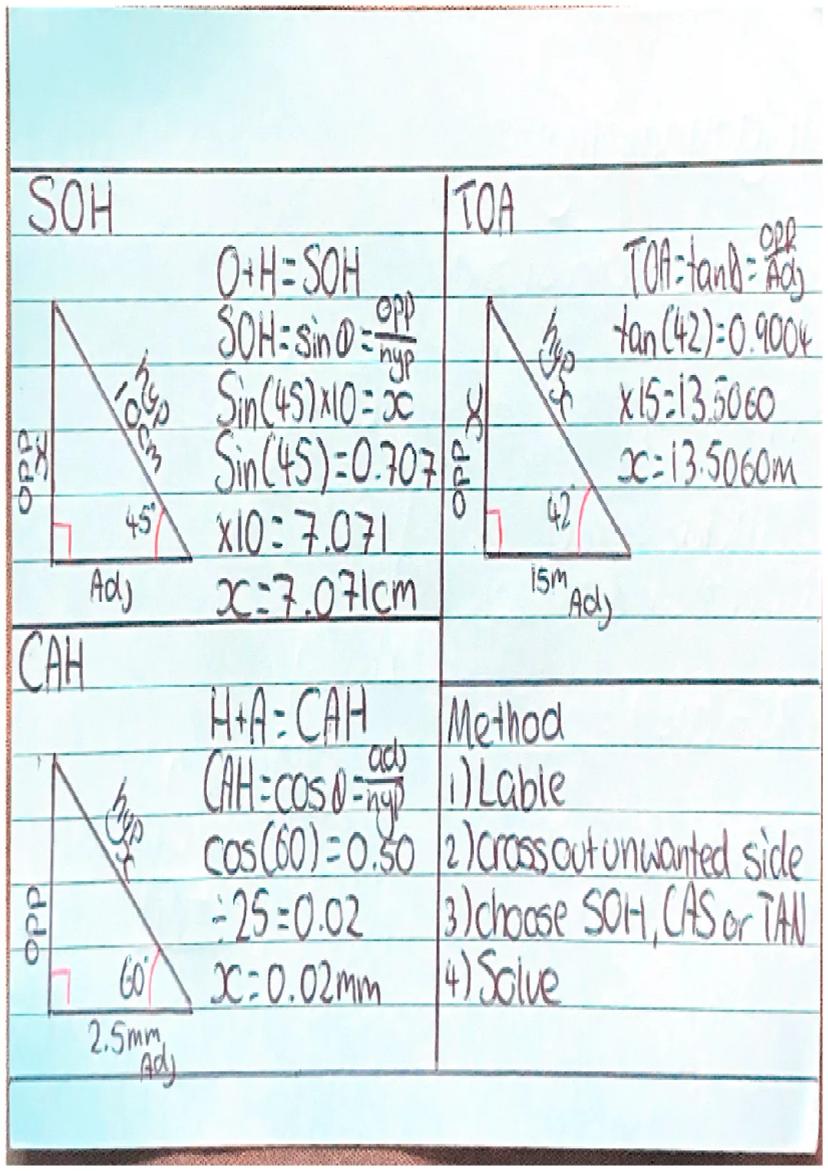 SOH
O+H=SOH
SOH=sinθ=opp/hyp
Sin(45)×10=x
Sin(45)=0.707
×10=7.071
x=7.071cm
OPP x
hyp 10cm
45°
Adj
TOA
TOA=tanθ=OPP/Adj
tan(42)=0.9004
×15=13.5060
x=13.5060m
OPP x
hyp
42°
15m
Adj
CAH
H+A=CAH
CAH=cosθ=adj/hyp
cos(60)=0.50
÷25=0.02
x=0.02mm
OPP
hyp x
60°
2.5mm
Adj
Method
1) Lable
2) cross out unwanted side
3) choose SOH, CAS or TAN
4) Solve